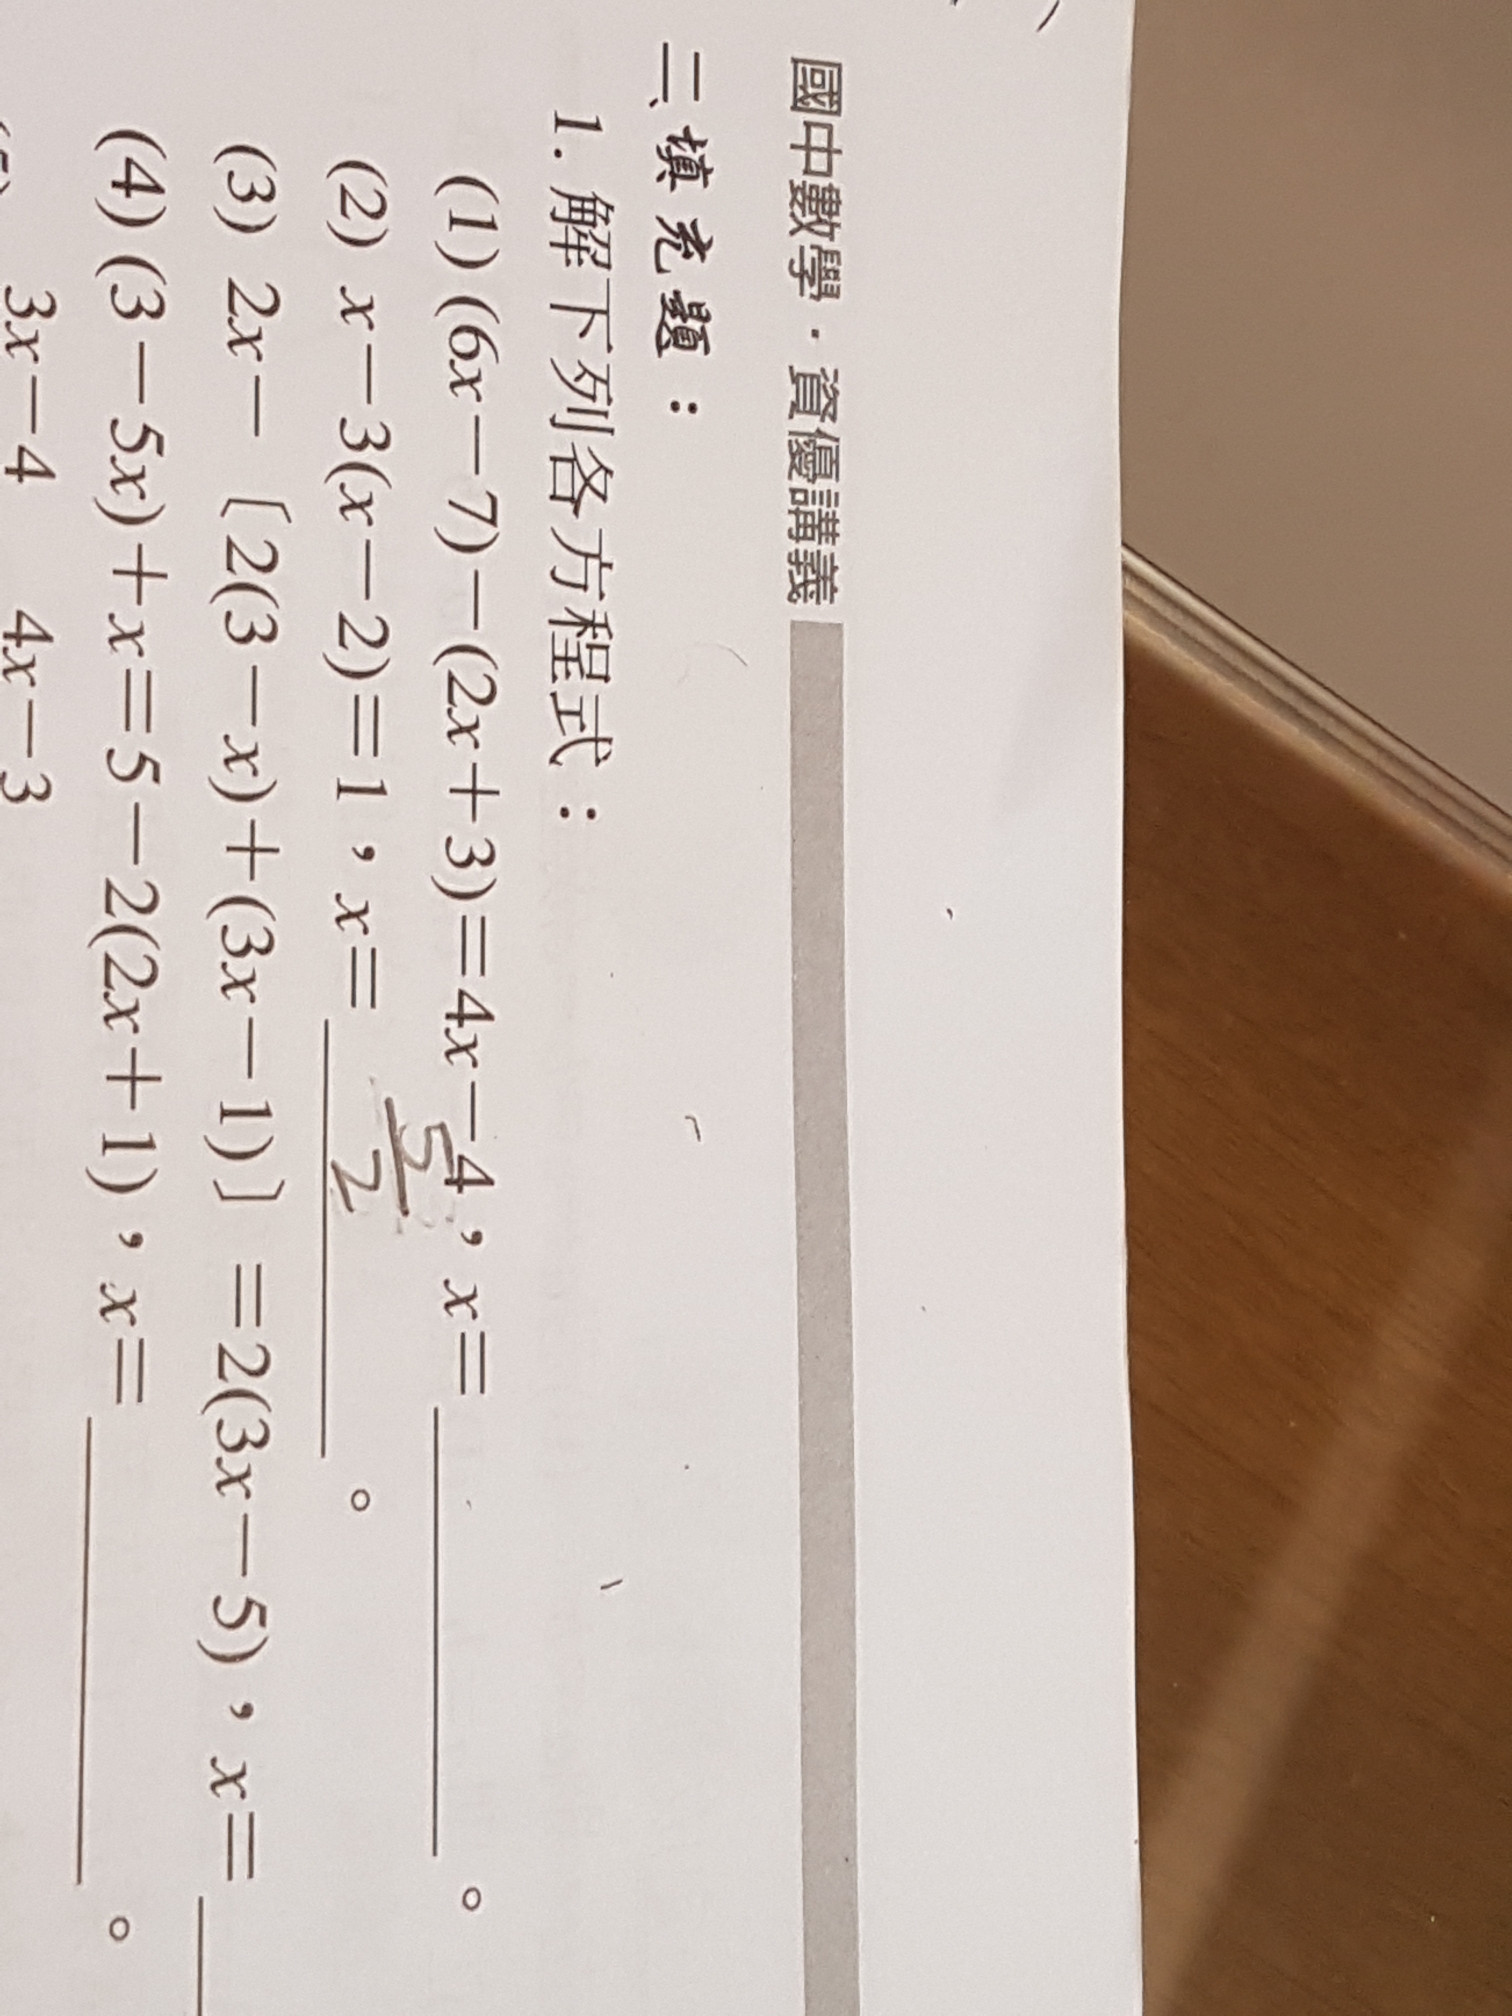 國中數學·資優講義
二、填充題：
1. 解下列各方程式：
(1) (6x−7)−(2x+3)=4x−4，x=______。
(2) x−3(x−2)=1，x= 5/2 。
(3) 2x−〔2(3−x)+(3x−1)〕=2(3x−5)，x=
(4) (3−5x)+x=5−2(2x+1)，x=______。
3x−4 4x−3